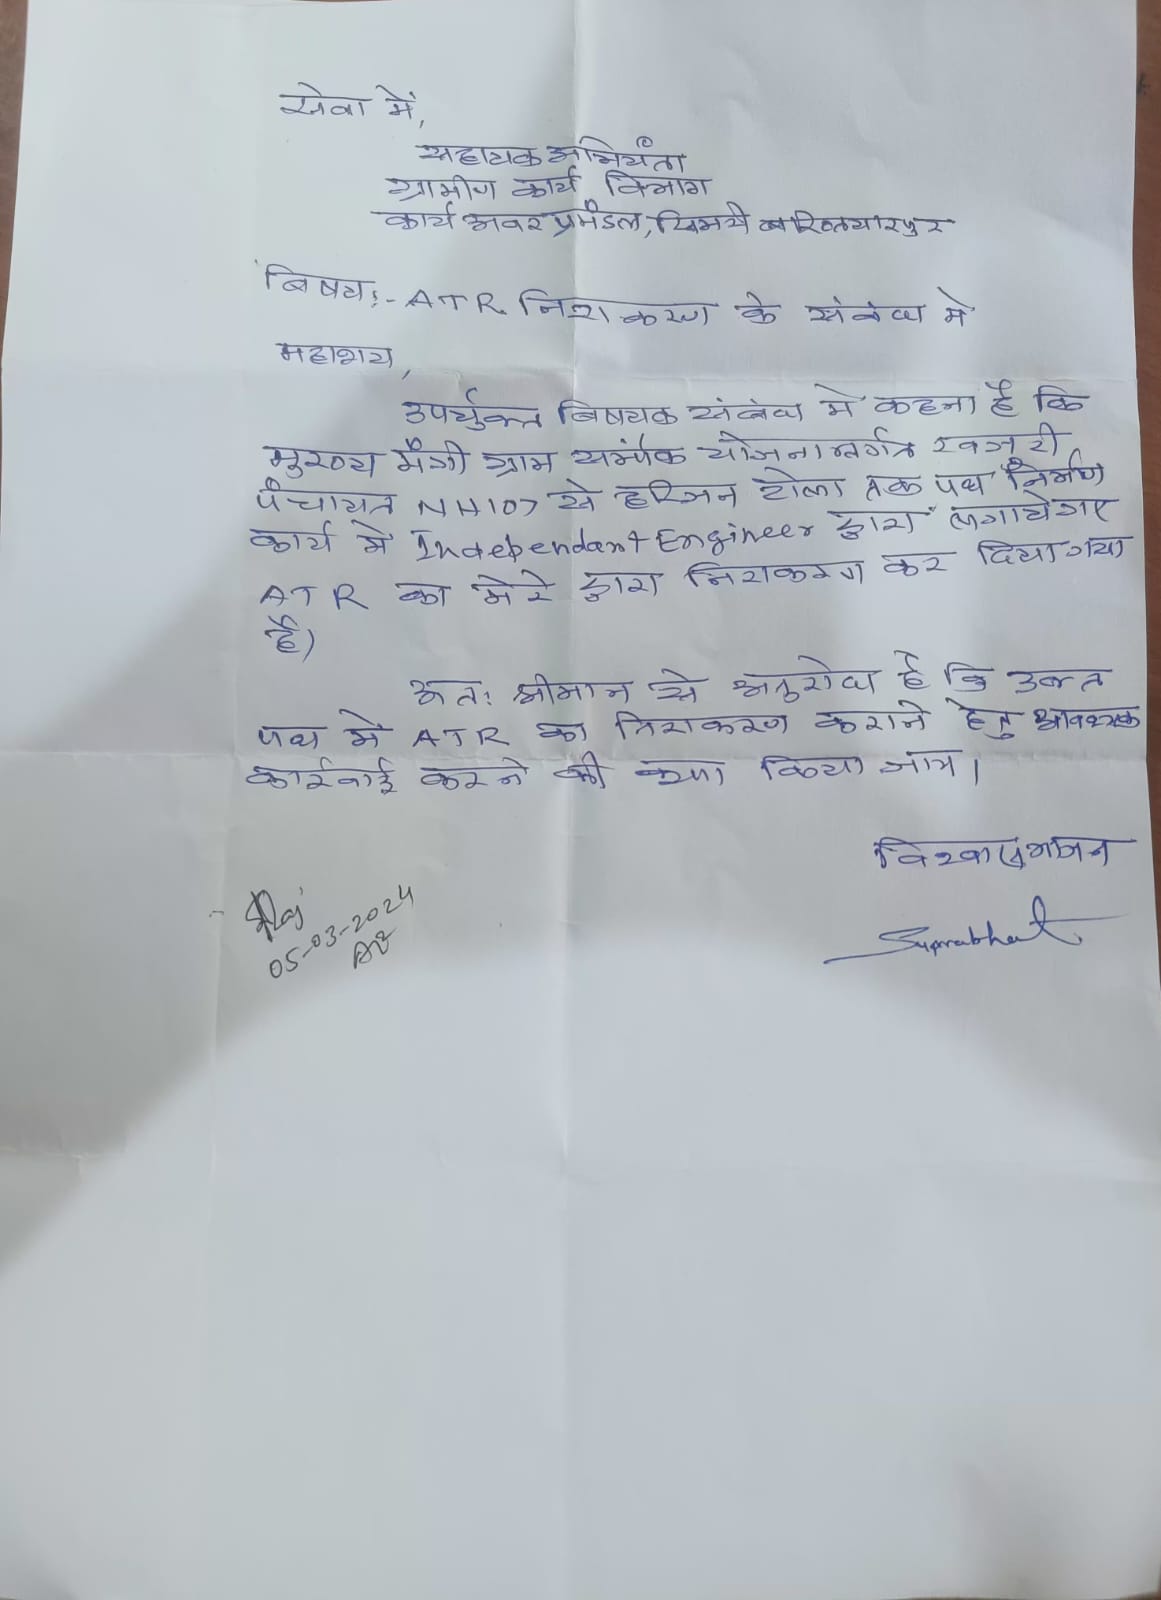 सेवा में,
सहायक अभियंता
ग्रामीण कार्य विभाग
कार्य अवर प्रमंडल, सिमरी बख्तियारपुर
विषय:- ATR निराकरण के संबंध मे
महाशय,
उपर्युक्त बिषयक संबंध मे कहना है कि
मुख्य मंत्री ग्राम सर्म्पक योजनान्तर्गत खजुरी
पंचायत NH107 से हरिजन टोला तक पथ निर्माण
कार्य मे Independant Engineer द्वारा लगायेगए
ATR का मेरे द्वारा निराकरण कर दिया गया
है)
अत: श्रीमान से अनुरोध है कि उक्त
पथ मे ATR का निराकरण कराने हेतु आवश्यक
कार्रवाई करने की कृपा किया जाय।
विश्वासभाजन
Suprabhat
05-03-2024